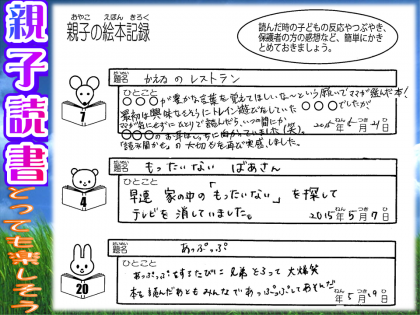 親子読書
とっても楽しそう
おやこ えほん きろく
親子の絵本記録
読んだ時の子どもの反応やつぶやき、
保護者の方の感想など、簡単にかき
とめておきましょう。
7
題名
かえるのレストラン
ひとこと
○○○が豊かな言葉を覚えてほしいな〜という願いでママが選んだ本!
最初は興味なさそうにトレイン遊びをしていた○○○でしたが、
ママが気にせずにひとりで読んだら、いつの間にか
○○○のお耳はこっちに向かっていました(笑)。
「読み聞かせ」の大切さを再び実感しました。
2015年5月21日
4
題名
もったいない ばあさん
ひとこと
早速 家の中の「もったいない」を探して
テレビを消していました。
ねん つき にち
2015年5月7日
20
題名
あっぷっぷ
ひとこと
あっぷっぷをするたびに 兄弟そろって 大爆笑
本を読んだあともみんなであっぷっぷしてあそんだ
ねん つき にち
年5月9日